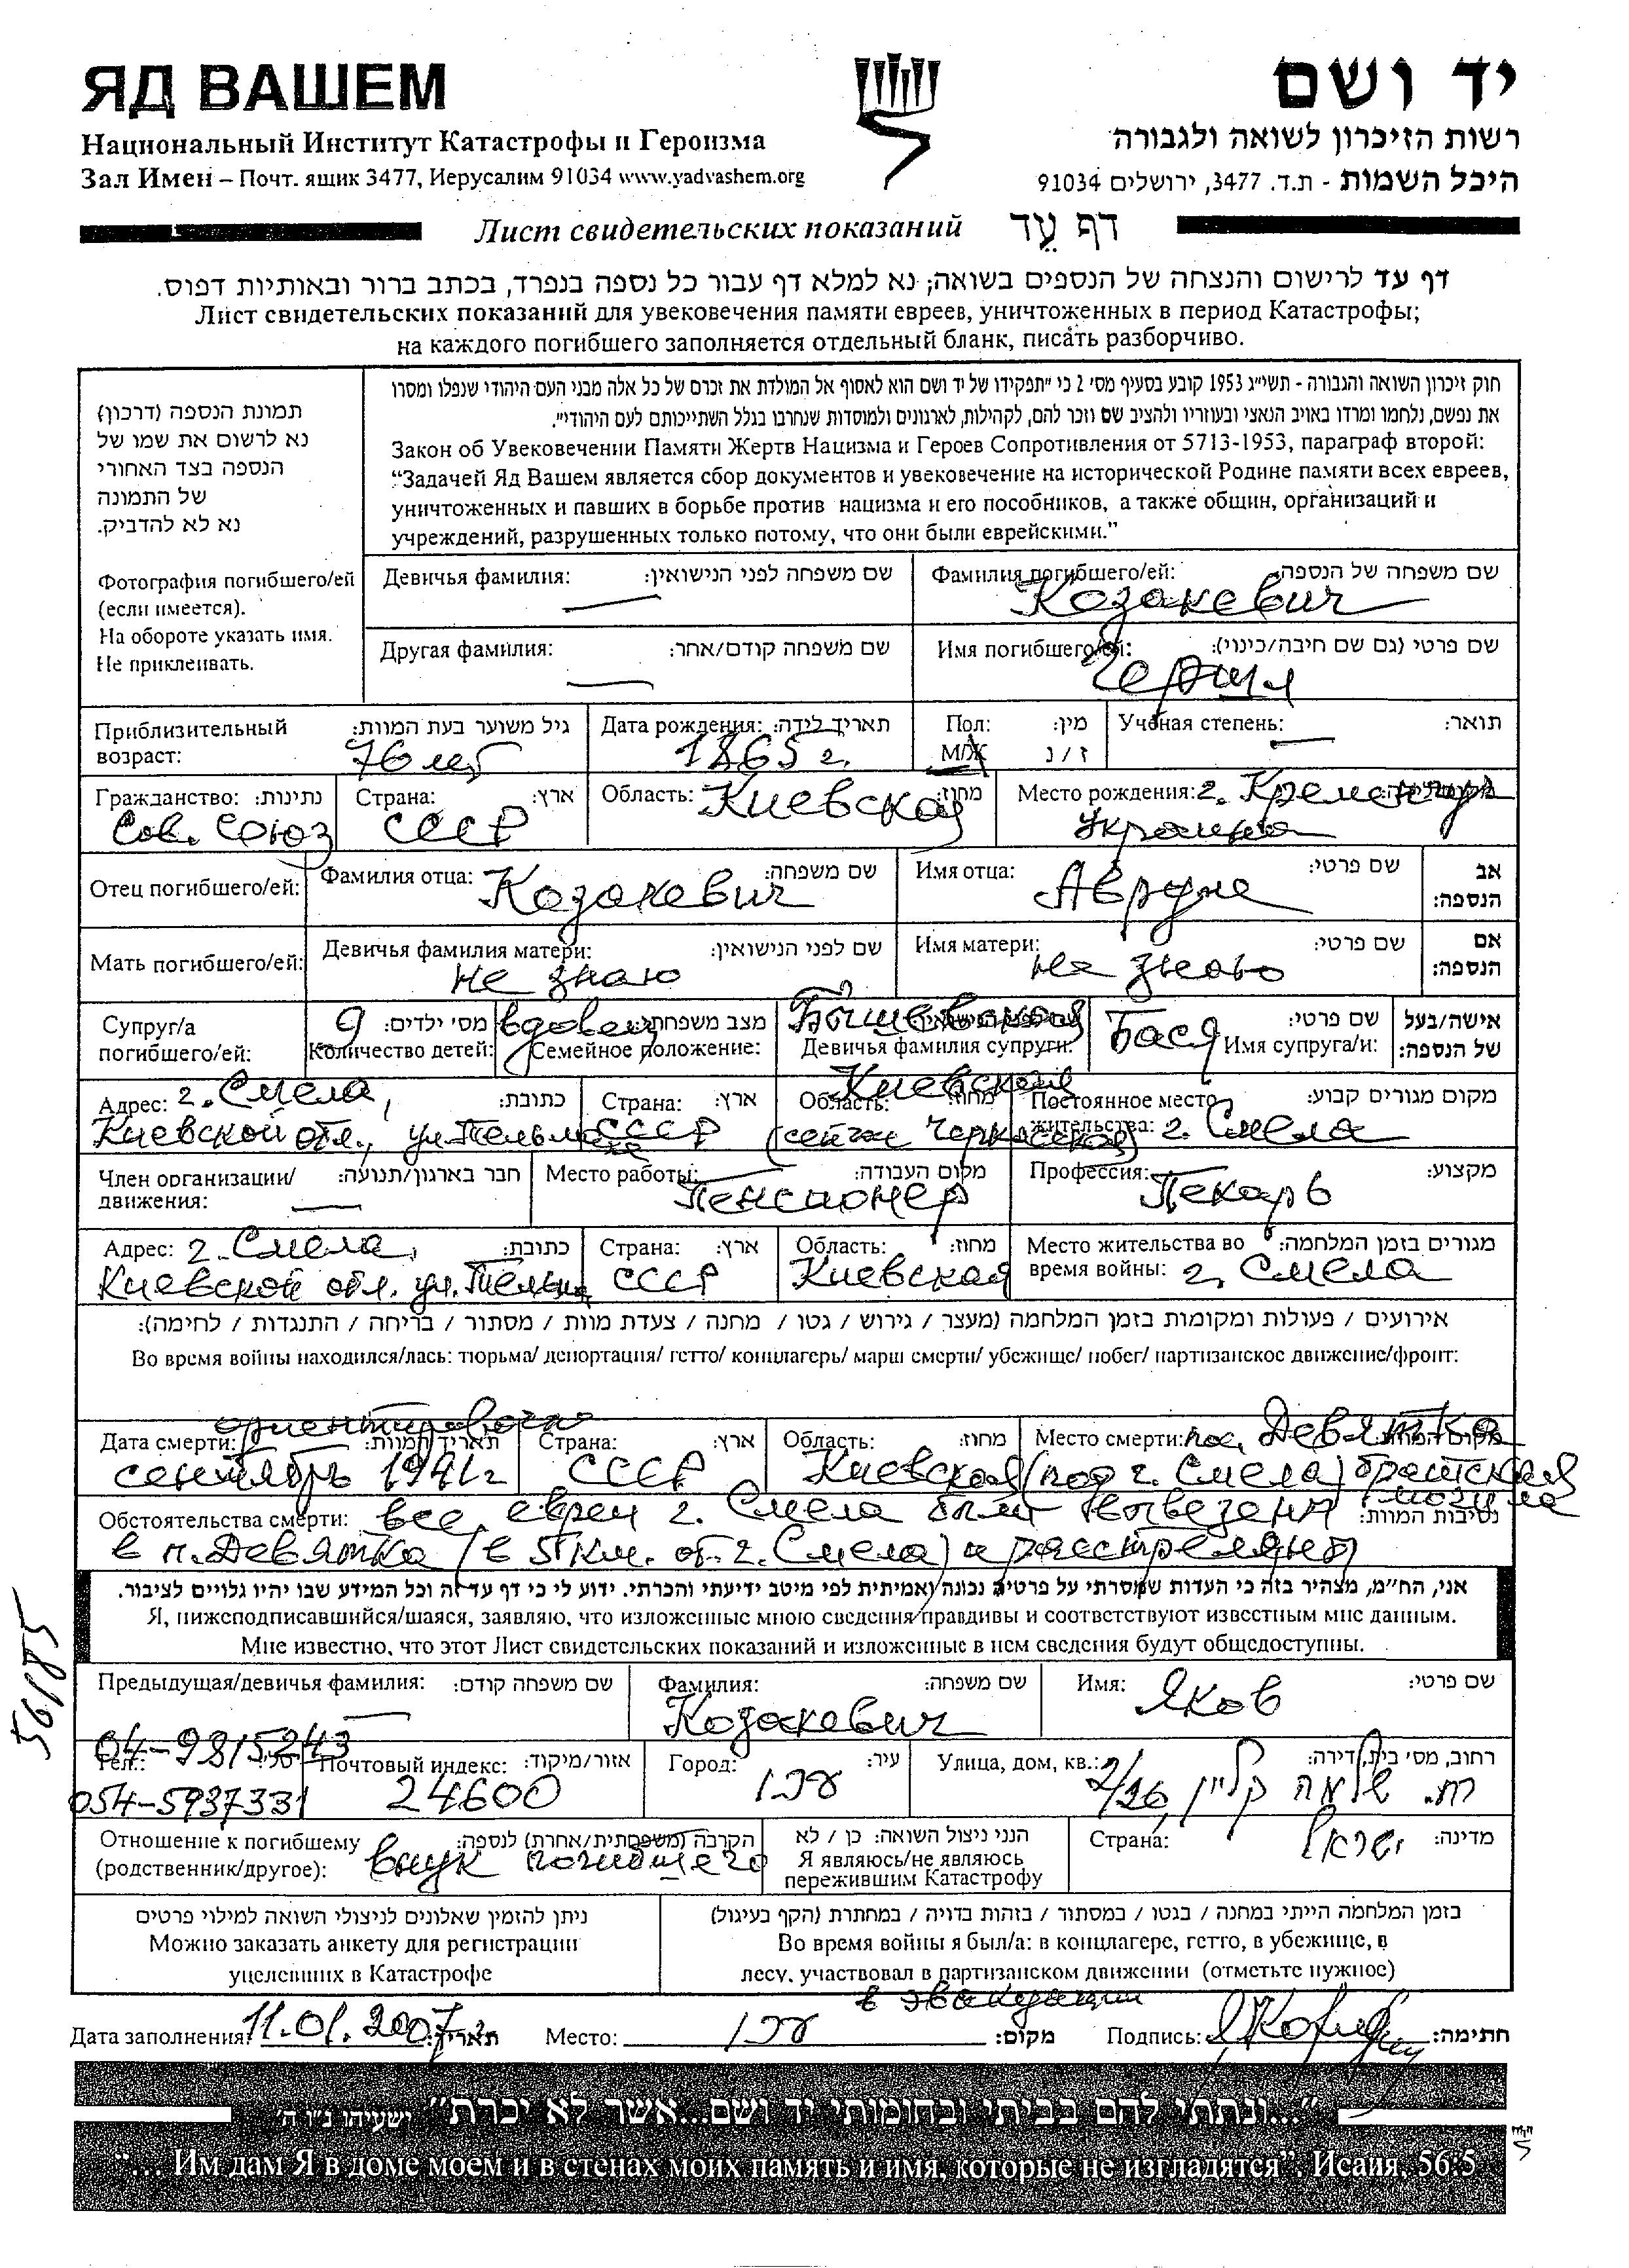 ЯД ВАШЕМ
יד ושם
Национальный Институт Катастрофы и Героизма
רשות הזיכרון לשואה ולגבורה
Зал Имен – Почт. ящик 3477, Иерусалим 91034 www.yadvashem.org
היכל השמות - ת.ד. 3477, ירושלים 91034
Лист свидетельских показаний דף עֵד
דף עד לרישום והנצחה של הנספים בשואה; נא למלא דף עבור כל נספה בנפרד, בכתב ברור ובאותיות דפוס.
Лист свидетельских показаний для увековечения памяти евреев, уничтоженных в период Катастрофы;
на каждого погибшего заполняется отдельный бланк, писать разборчиво.
תמונת הנספה (דרכון)
נא לרשום את שמו של
הנספה בצד האחורי
של התמונה
נא לא להדביק.
Фотография погибшего/ей
(если имеется).
На обороте указать имя.
Не приклеивать.
חוק זיכרון השואה והגבורה - תשי״ג 1953 קובע בסעיף מס׳ 2 כי ״תפקידו של יד ושם הוא לאסוף אל המולדת את זכרם של כל אלה מבני העם היהודי שנפלו ומסרו
את נפשם, נלחמו ומרדו באויב הנאצי ובעוזריו ולהציב שם וזכר להם, לקהילות, לארגונים ולמוסדות שנחרבו בגלל השתייכותם לעם היהודי״.
Закон об Увековечении Памяти Жертв Нацизма и Героев Сопротивления от 5713-1953, параграф второй:
“Задачей Яд Вашем является сбор документов и увековечение на исторической Родине памяти всех евреев,
уничтоженных и павших в борьбе против нацизма и его пособников, а также общин, организаций и
учреждений, разрушенных только потому, что они были еврейскими.”
Девичья фамилия: שם משפחה לפני הנישואין:
Фамилия погибшего/ей: שם משפחה של הנספה:
Козакевич
Другая фамилия: שם משפחה קודם/אחר:
Имя погибшего/ей: שם פרטי (גם שם חיבה/כינוי):
Приблизительный возраст: גיל משוער בעת המוות:
76 лет
Дата рождения: תאריך לידה:
1865 г.
Пол: מין:
М/Ж ז / נ
Учёная степень: תואר:
Гражданство: נתינות:
Сов. Союз
Страна: ארץ:
СССР
Область: מחוז:
Киевская
Место рождения: г. Кременчуг
Украина
Отец погибшего/ей:
Фамилия отца: שם משפחה:
Козакевич
Имя отца: שם פרטי:
אב הנספה:
Мать погибшего/ей:
Девичья фамилия матери: שם לפני הנישואין:
не знаю
Имя матери: שם פרטי:
не знаю
אם הנספה:
Супруг/а погибшего/ей:
9 מס׳ ילדים:
Количество детей:
вдовец מצב משפחתי:
Семейное положение:
Девичья фамилия супруги:
Бася שם פרטי:
Имя супруга/и:
אישה/בעל של הנספה:
Адрес: г. Смела, כתובת:
Киевской обл., ул. Тельмана
Страна: ארץ:
СССР
Киевская
Область: מחוז:
(сейчас Черкасская)
Постоянное место жительства: מקום מגורים קבוע:
г. Смела
Член организации/движения: חבר בארגון/תנועה:
Место работы: מקום העבודה:
Пенсионер
Профессия: מקצוע:
Пекарь
Адрес: г. Смела, כתובת:
Киевской обл. ул. Тельмана
Страна: ארץ:
СССР
Область: מחוז:
Киевская
Место жительства во время войны: מגורים בזמן המלחמה:
г. Смела
אירועים / פעולות ומקומות בזמן המלחמה (מעצר / גירוש / גטו / מחנה / צעדת מוות / מסתור / בריחה / התנגדות / לחימה):
Во время войны находился/лась: тюрьма/ депортация/ гетто/ концлагерь/ марш смерти/ убежище/ побег/ партизанское движение/фронт:
ориентировочно
Дата смерти: תאריך המוות:
сентябрь 1941 г
Страна: ארץ:
СССР
Область: מחוז:
Киевская
Место смерти: пос. Девятка מקום המוות:
(под г. Смела) братская могила
Обстоятельства смерти: все евреи г. Смела были вывезены נסיבות המוות:
в п. Девятка (в 5 км. от г. Смела) и расстреляны
אני, הח״מ, מצהיר בזה כי העדות שמסרתי על פרטיה נכונה ואמיתית לפי מיטב ידיעתי והכרתי. ידוע לי כי דף עד זה וכל המידע שבו יהיו גלויים לציבור.
Я, нижеподписавшийся/шаяся, заявляю, что изложенные мною сведения правдивы и соответствуют известным мне данным.
Мне известно, что этот Лист свидетельских показаний и изложенные в нем сведения будут общедоступны.
56185
Предыдущая/девичья фамилия: שם משפחה קודם:
Фамилия: שם משפחה:
Козакевич
Имя: שם פרטי:
Яков
04-9815243
Тел.: טל׳:
054-5937331
Почтовый индекс: אזור/מיקוד:
24600
Город: עיר:
עכו
Улица, дом, кв.: רחוב, מס׳ בית, דירה:
רח. שלמה קליין 2/26
Отношение к погибшему הקרבה (משפחתית/אחרת) לנספה:
(родственник/другое): внук погибшего
הנני ניצול השואה: כן / לא
Я являюсь/не являюсь
пережившим Катастрофу
Страна: מדינה:
ישראל
ניתן להזמין שאלונים לניצולי השואה למילוי פרטים
Можно заказать анкету для регистрации
уцелевших в Катастрофе
בזמן המלחמה הייתי במחנה / בגטו / במסתור / בזהות בדויה / במחתרת (הקף בעיגול)
Во время войны я был/а: в концлагере, гетто, в убежище, в
лесу, участвовал в партизанском движении (отметьте нужное)
в эвакуации
Дата заполнения: 11.01.2007 г. תאריך: Место: עכו מקום: Подпись: חתימה:
“...ונתתי להם בביתי ובחומותי יד ושם...אשר לא יכרת” ישעיהו נ״ו ה׳
“... Им дам Я в доме моем и в стенах моих память и имя, которые не изгладятся”. Исаия, 56:5